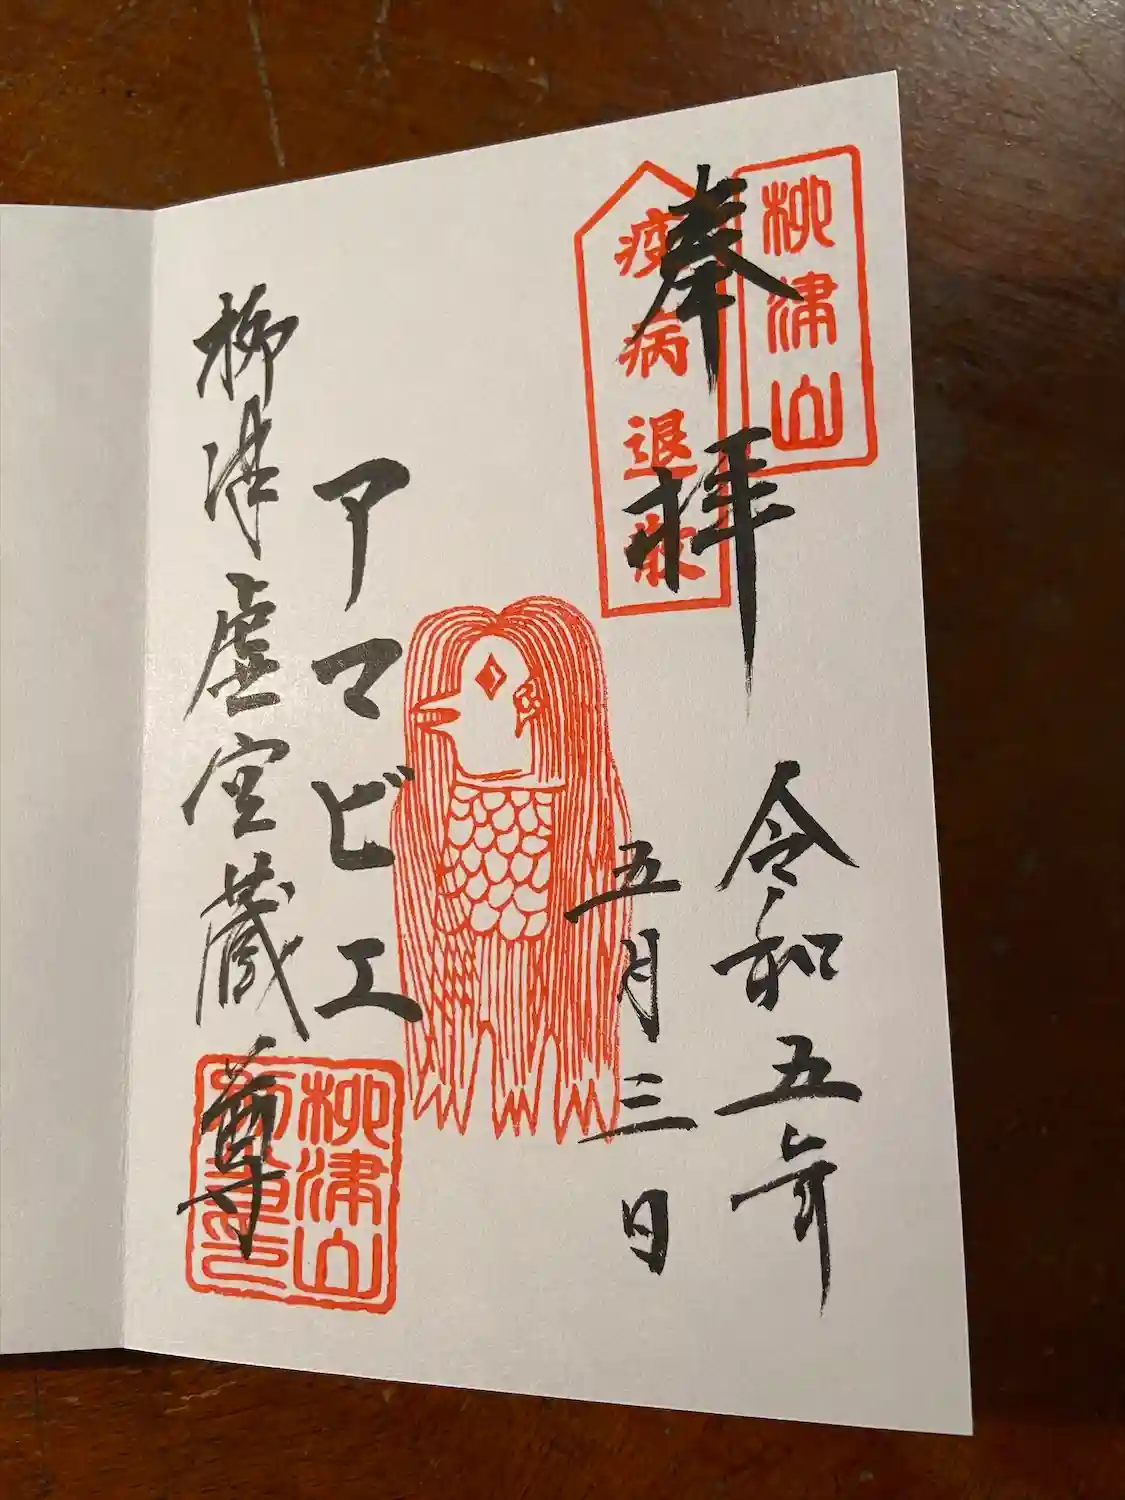 柳津山
疫病退散
奉拝
令和五年
五月三日
アマビエ
柳津虚空蔵尊
柳津山